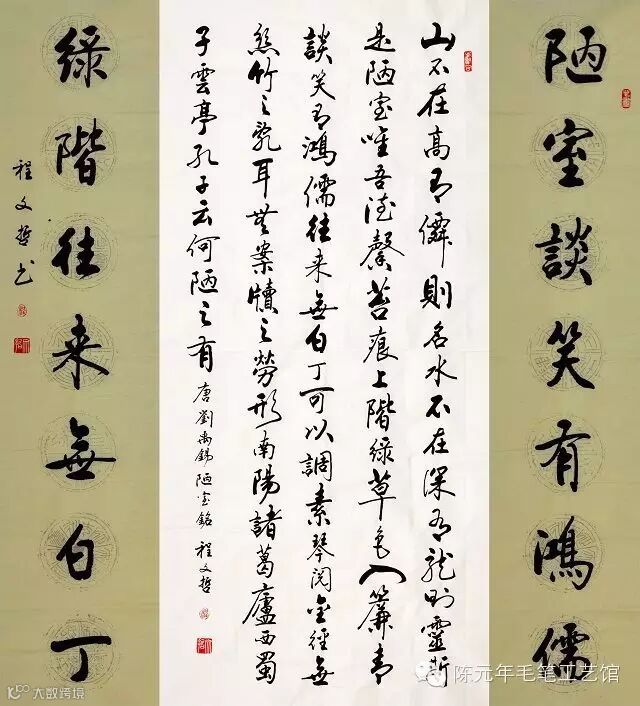 陋室談笑有鴻儒
山不在高有僊則名水不在深有龍則靈斯
是陋室唯吾德馨苔痕上階綠草色入簾青
談笑有鴻儒往来無白丁可以調素琴閱金經無
絲竹之乱耳無案牘之勞形南陽諸葛廬西蜀
子雲亭孔子云何陋之有 唐劉禹錫陋室銘 程文哲
綠階往来無白丁
程文哲书
陈元年毛笔工艺馆
大数跨境